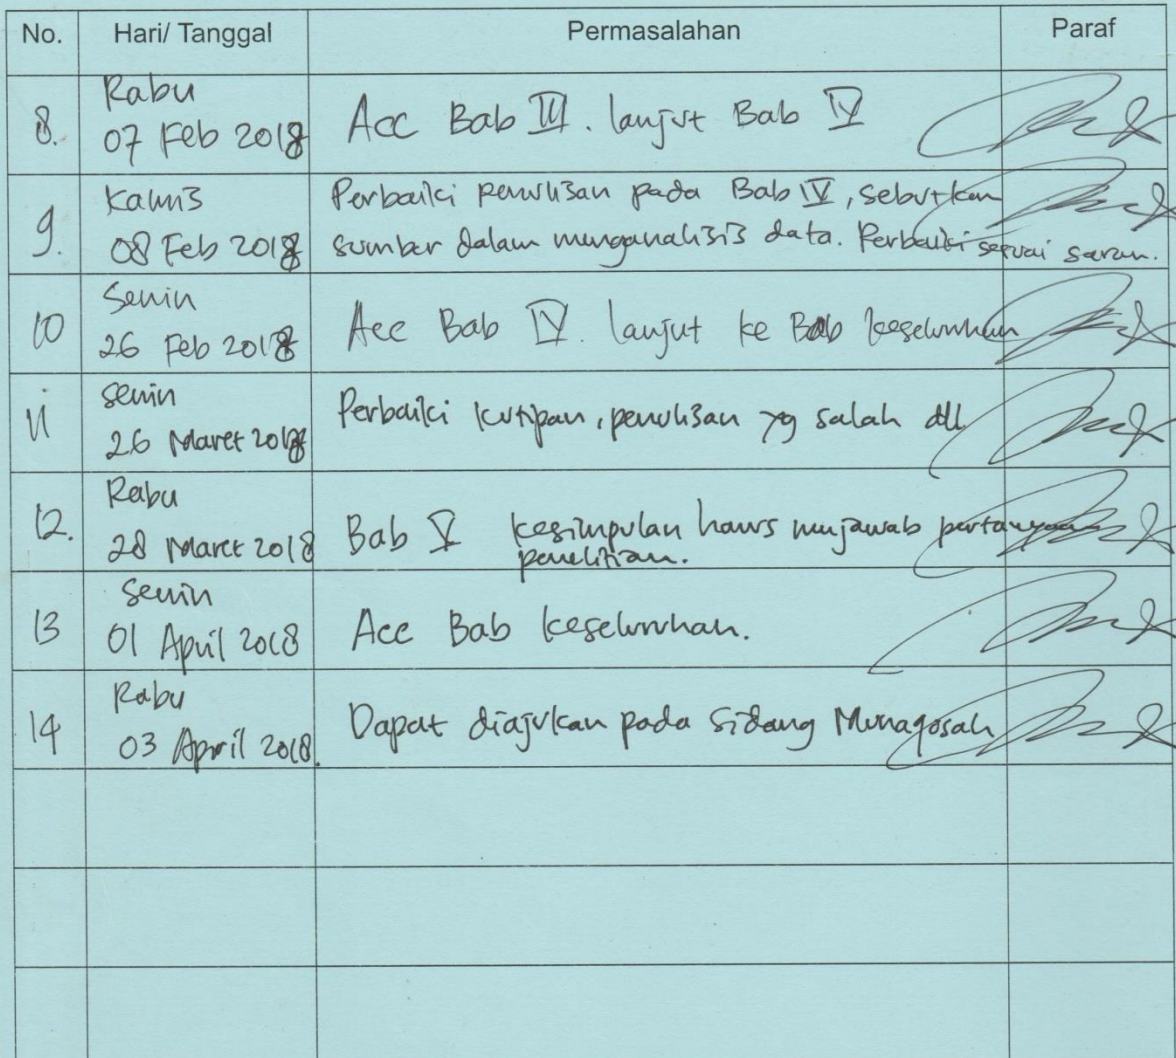 No. Hari/ Tanggal Permasalahan Paraf
8. Rabu
07 Feb 2018 Acc Bab III. lanjut Bab IV
9. Kamis
08 Feb 2018 Perbaiki penulisan pada Bab IV, sebutkan
sumber dalam menganalisis data. Perbaiki sesuai saran.
10 Senin
26 Feb 2018 Acc Bab IV. lanjut ke Bab keseluruhan
11 Senin
26 Maret 2018 Perbaiki kutipan, penulisan yg salah dll
12. Rabu
28 Maret 2018 Bab V kesimpulan harus menjawab pertanyaan
penelitian.
13 Senin
01 April 2018 Acc Bab keseluruhan.
14 Rabu
03 April 2018. Dapat diajukan pada Sidang Munaqosah